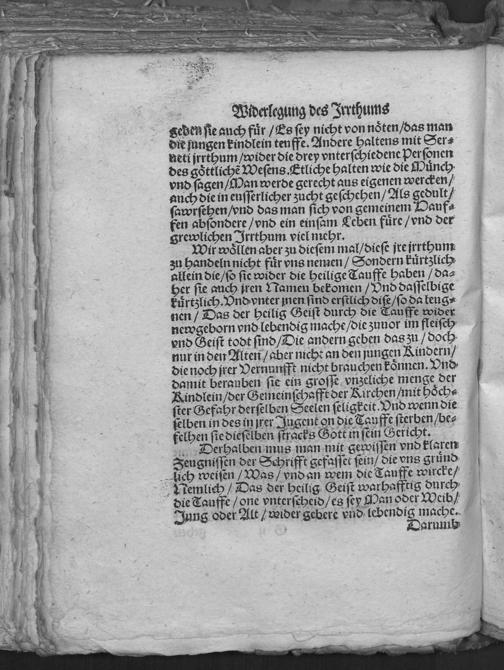 Widerlegung des Jrrthums
geben sie auch für / Es sey nicht von nöten / das man
die jungen kindlein teuffe. Andere haltens mit Ser-
neti jrrthum / wider die drey vnterschiedene Personen
des göttliche Wesens. Etliche halten wie die Münch
vnd sagen / Man werde gerecht aus eigenen wercken /
auch die in eusserlicher zucht geschehen / Als gedult /
sawrsehen / vnd das man sich von gemeinem Hauf-
fen absondere / vnd ein einsam Leben füre / vnd der
grewlichen Jrrthum viel mehr.
Wir wöllen aber zu diesem mal / diese jre jrrthum
zu handeln nicht für vns nemen / Sondern kürtzlich
allein die / so sie wider die heilige Tauffe haben / da-
her sie auch jren Namen bekomen / Vnd dasselbige
kürtzlich. Vnd vnter jnen sind erstlich dise / so da leug-
nen / Das der heilig Geist durch die Tauffe wider
newgeborn vnd lebendig mache / die zuuor im fleisch
vnd Geist todt sind / Die andern geben das zu / doch
nur in den Alten / aber nicht an den jungen Kindern /
die noch jrer Vernunfft nicht brauchen können. Vnd
damit berauben sie ein grosse vnzeliche menge der
Kindlein / der Gemeinschafft der Kirchen / mit höch-
ster Gefahr derselben Seelen seligkeit. Vnd wenn die
selben in des in jrer Jugent on die Tauffe sterben / be-
felhen sie dieselben stracks Gott in sein Gericht.
Derhalben mus man mit gewissen vnd klaren
Zeugnissen der Schrifft gefasset sein / die vns gründ
lich weisen / Was / vnd an wem die Tauffe wircke /
Nemlich / Das der heilig Geist warhafftig durch
die Tauffe / one vnterscheid / es sey Man oder Weib /
Jung oder Alt / wider gebere vnd lebendig mache.
Darumb